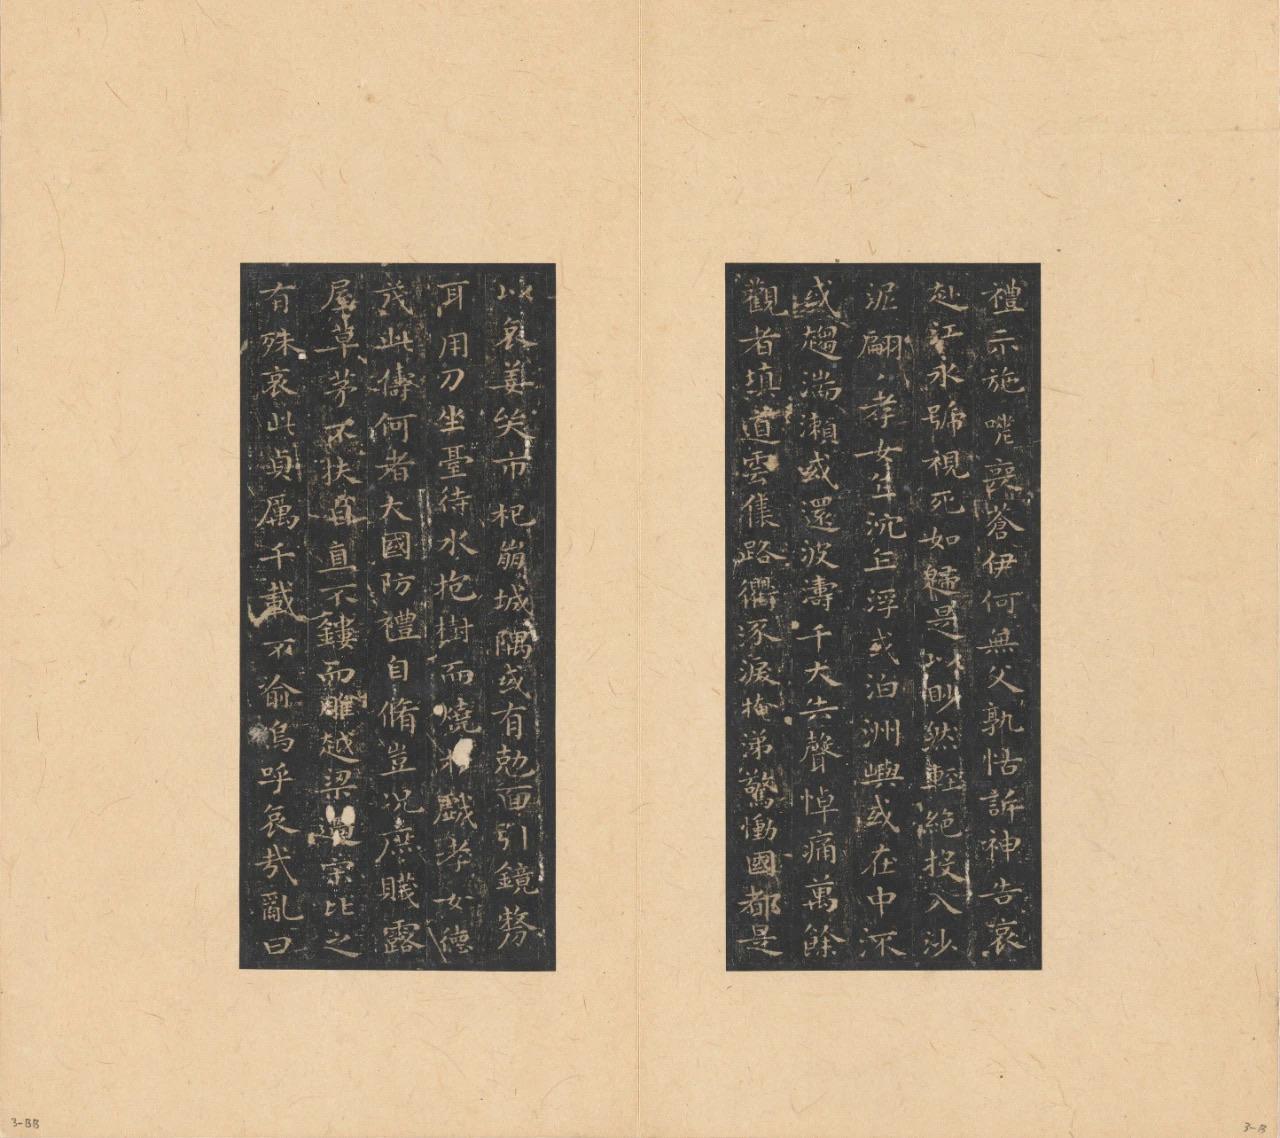 禮示施嗟喪蒼伊何無父孰怙訴神告哀
赴江永號視死如歸是以眇然輕絕投入沙
泥翩翩孝女乍沉乍浮或泊洲嶼或在中流
或趨湍瀨或還波濤千夫失聲悼痛萬餘
觀者填道雲集路衢泺淚掩涕驚慟國都是
以哀姜哭市杞崩城隅或有尅面引鏡剺
耳用刀坐臺待水抱樹而燒於戲孝女德
茂此儔何者大國防禮自脩豈況庶賤露
屋草茅不扶自直不鏤而雕越梁過宋比之
有殊哀此貞厲千載不渝嗚呼哀哉亂曰
3-BB
3-B